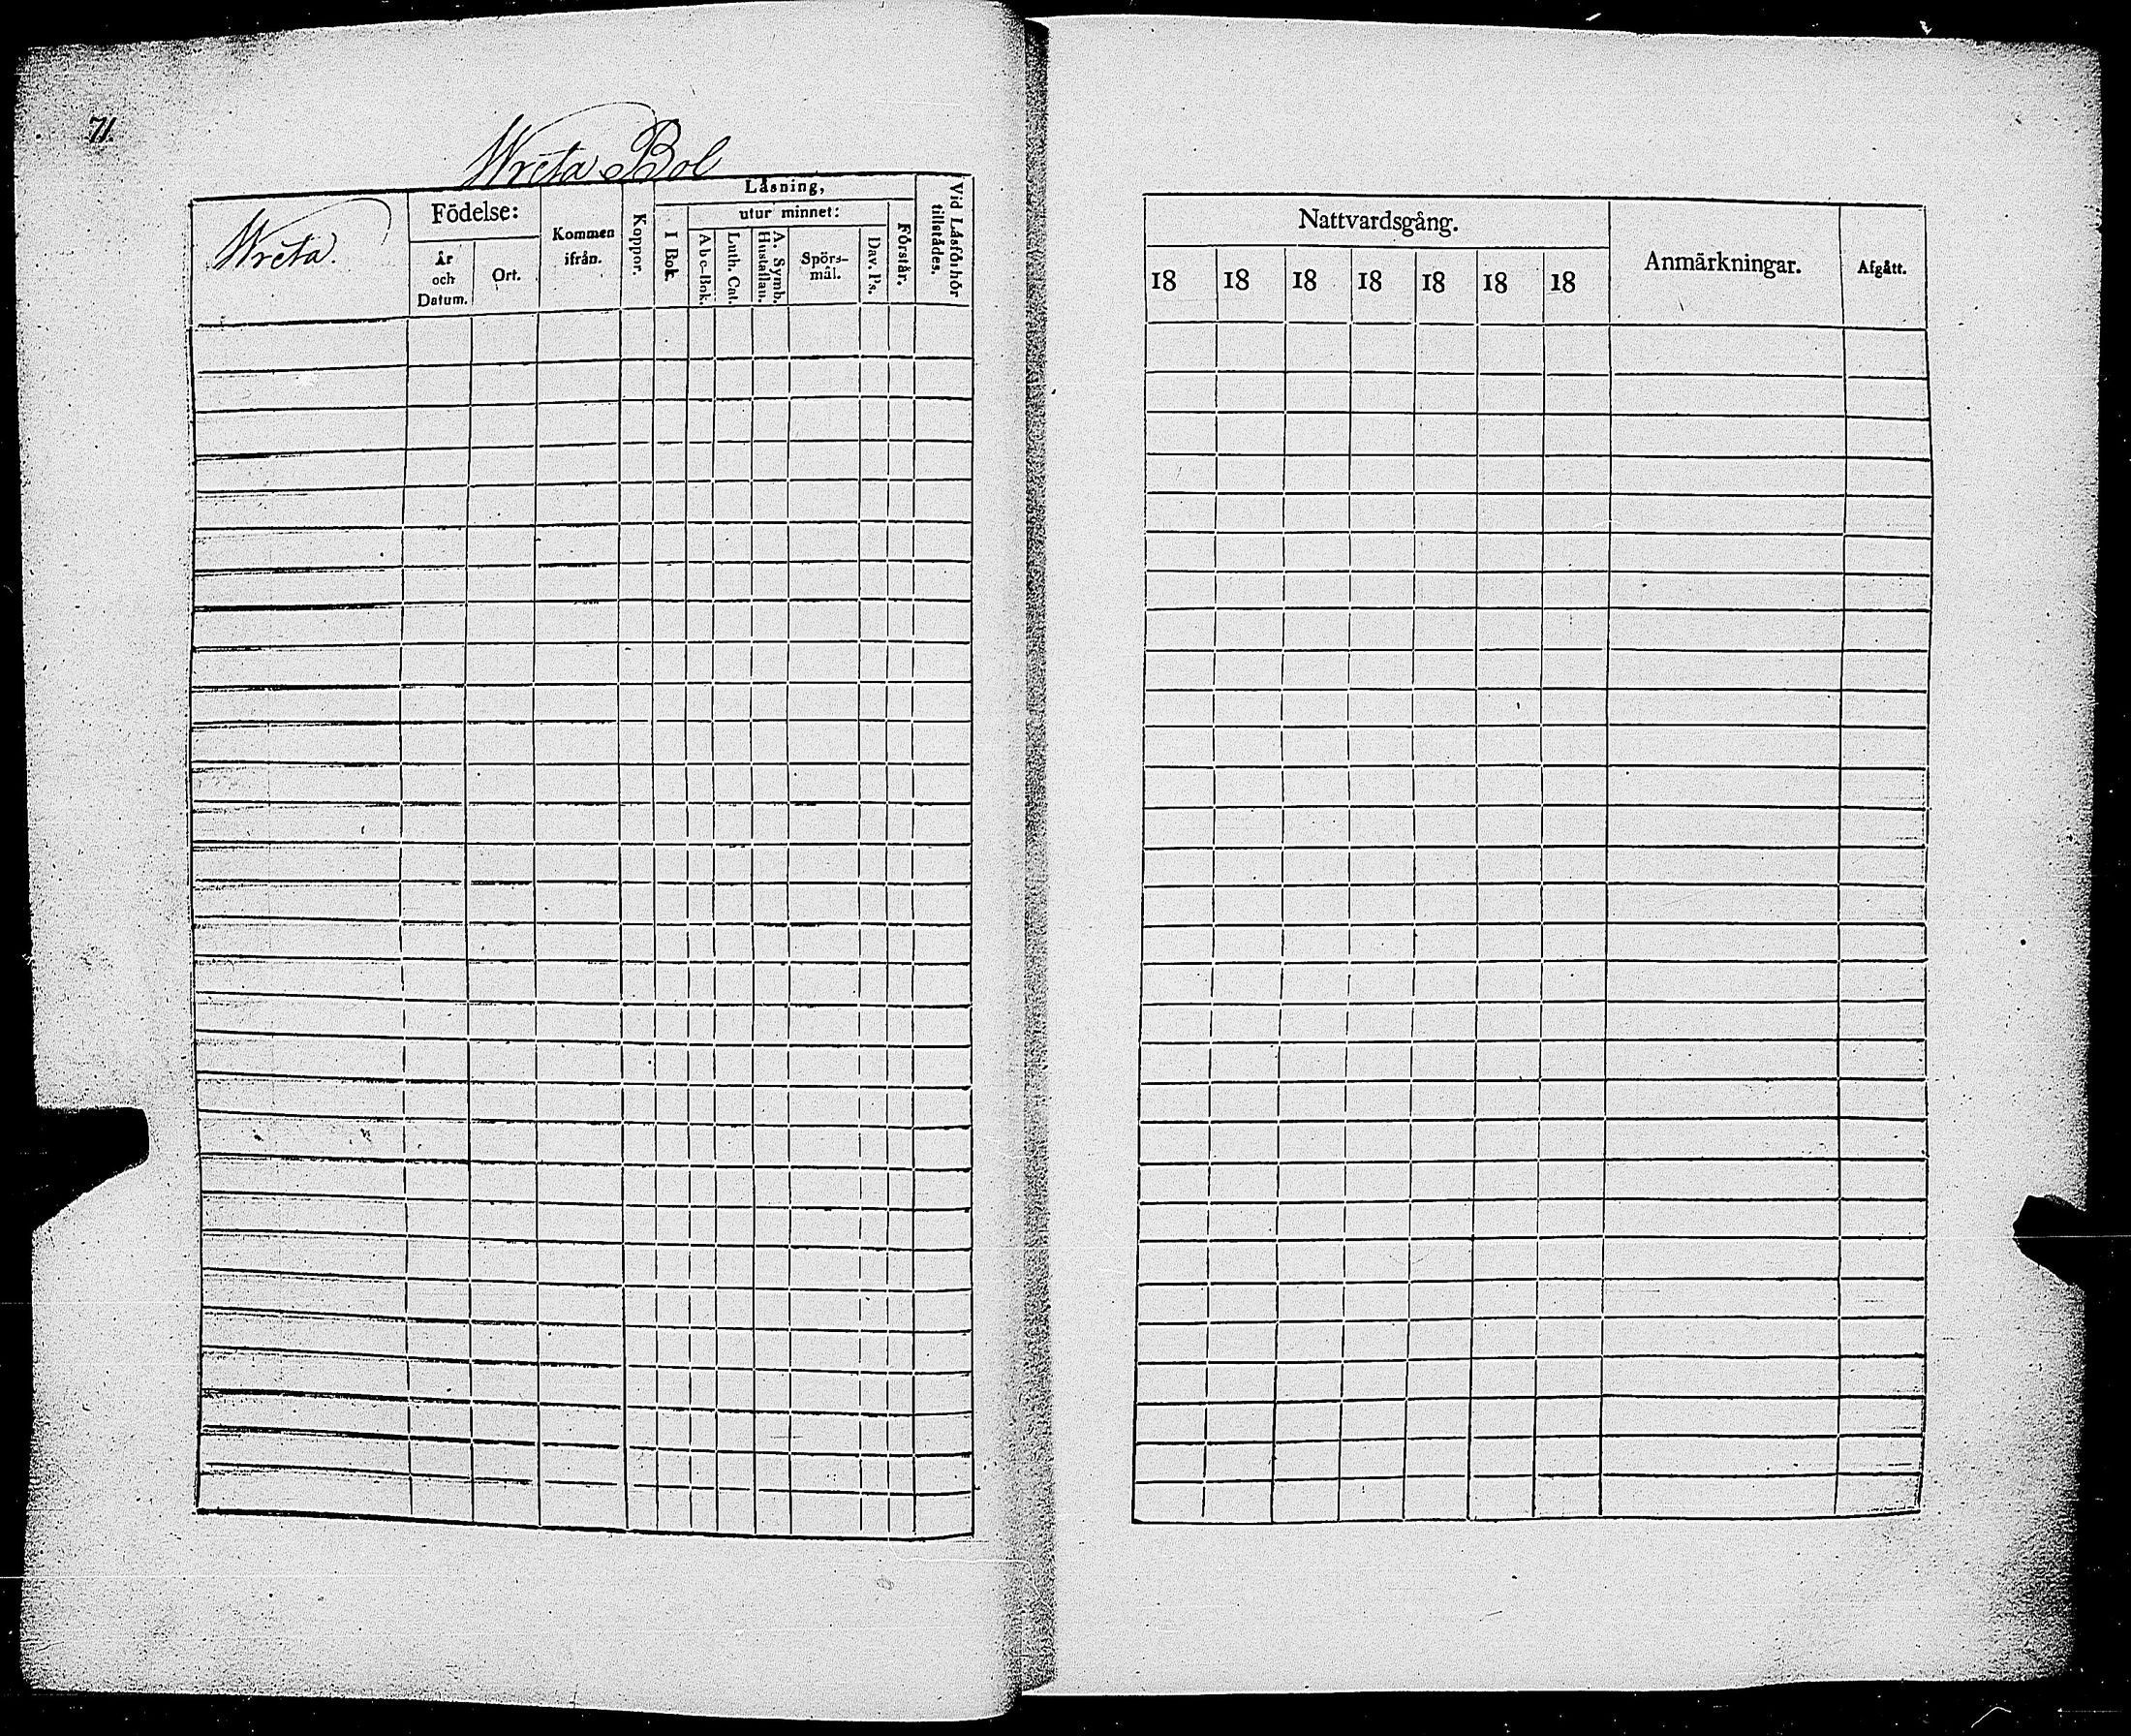 71.
Wreta Bol
Wreta.
Födelse:
År och Datum.
Ort.
Kommen ifrån.
Koppor.
Låsning,
I Bok.
utur minnet:
Abc-Bok.
Luth. Cat.
A. Symb. Hustaflan.
Spörs-
mål.
Dav. Ps.
Förstår.
Vid Låsförhör tillstådes.
Nattvardsgång.
18 18 18 18 18 18 18
Anmärkningar.
Afgått.